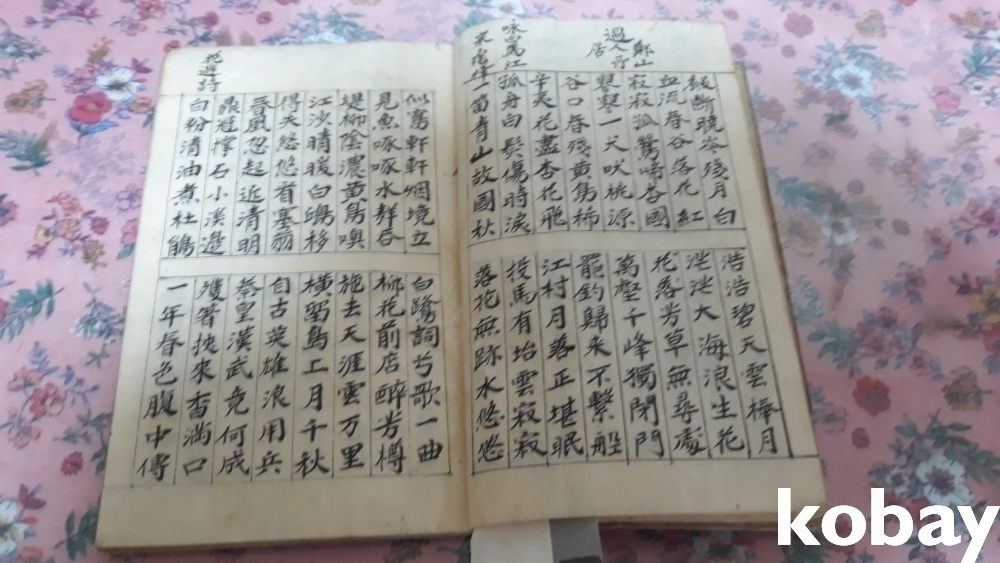 鄭山
過人行
居
咏白馬江
断曉岑殘月白
血流春谷落花紅
寂寂孤鶯啼杏國
寥寥一犬吠桃源
谷口春殘黃鳥柿
辛夷花盡杏花飛
孤舟白髮傷時淚
一笛青山故國秋
浩浩碧天雲棒月
茫茫大海浪生花
花落芳草無尋處
萬壑千峰獨閉門
罷釣歸来不繫船
江村月落正堪眠
投馬有坮雲寂寂
落花無跡水悠悠
花遊詩
似舊軒軒烟境立
見魚啄啄水群呑
堤柳陰濃黃鳥嗅
江沙晴暖白鷗移
得失悠悠看塞翁
春風忽起近清明
鼎冠撑石小溪邊
白粉清油煮杜鵑
白鷺詞兮歌一曲
柳花前店醉芳樽
施去天涯雲万里
橫留島上月千秋
自古英雄浪用兵
秦皇漢武竟何成
雙箸挾來香滿口
一年春色腹中傳
kobay